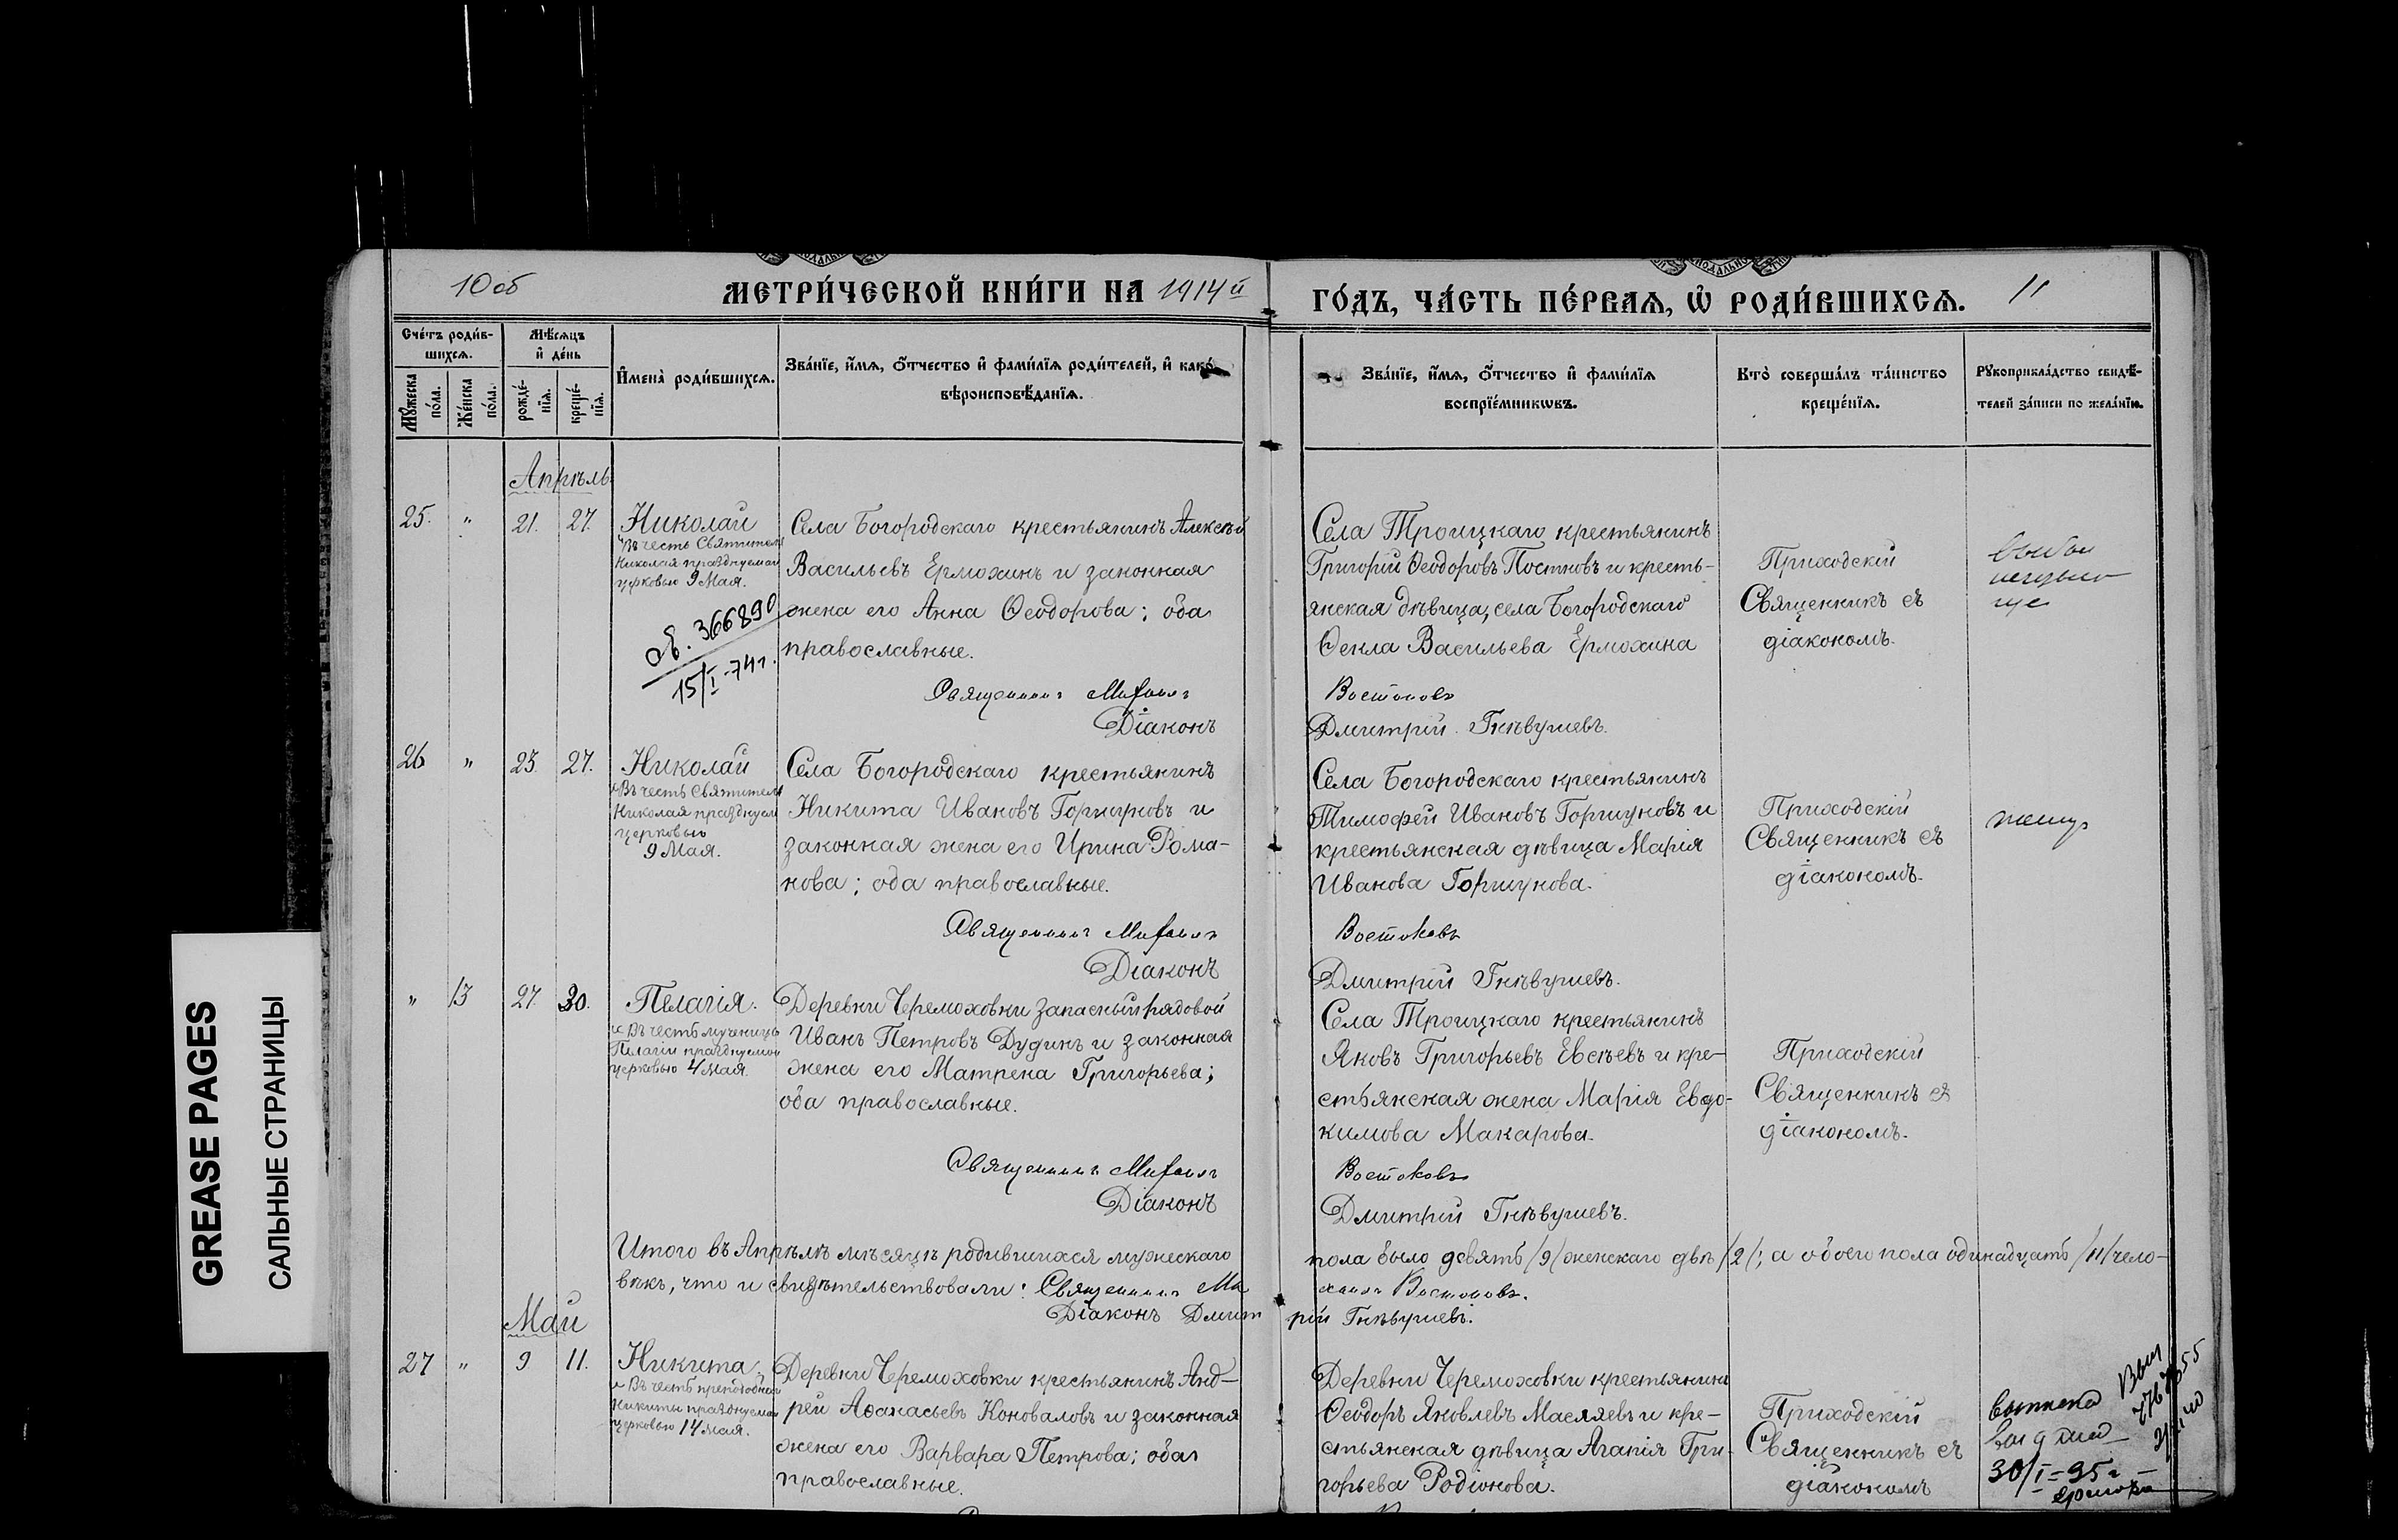 10 об
МЕТРИ́ЧЕСКОЙ КНИ́ГИ НА 1914 й
ГО́ДЪ, ЧА́СТЬ ПЕ́РВАѦ, Ѡ҆ РОДИ́ВШИХСѦ.
11
Сче́тъ роди́в-
шихсѧ.
Мꙋ́жеска по́ла.
Же́нска по́ла.
Мѣ́сѧцъ
и҆ де́нь
рожде́-
нїѧ.
креще́-
нїѧ.
И҆мена̀ роди́вшихсѧ.
Зва́нїе, и҆́мѧ, ѻ҆́тчество и҆ фами́лїѧ роди́телей, и҆ како́гѡ
вѣроисповѣ́данїѧ.
Зва́нїе, и҆́мѧ, ѻ҆́тчество и҆ фами́лїѧ
воспрїе́мникѡвъ.
Кто̀ соверша́лъ та́инство
креще́нїѧ.
Рꙋкоприкла́дство свидѣ́-
телей за́писи по жела́нїю.
Апрѣль
25. " 21. 27. Николай
"Въ честь Святителя
Николая празднуемаго
церковью 9 Мая.
св. 366890
15/I-74г.
Села Богородскаго крестьянинъ Алексѣй
Васильевъ Ермохинъ и законная
жена его Анна Ѳеодорова; оба
православные.
Священникъ Михаилъ
Діаконъ
Села Троицкаго крестьянинъ
Григорій Ѳеодоровъ Постновъ и кресть-
янская дѣвица, села Богородскаго
Ѳекла Васильева Ермохина
Востоковъ
Дмитрій Гнѣвушевъ.
Приходскій
Священникъ съ
діакономъ.
26 " 23. 27. Николай
"Въ честь Святителя
Николая празднуем
церковью
9 Мая.
Села Богородскаго крестьянинъ
Никита Ивановъ Горшуновъ и
законная жена его Ирина Рома-
нова; оба православные.
Священникъ Михаилъ
Діаконъ
Села Богородскаго крестьянинъ
Тимофей Ивановъ Горшуновъ и
крестьянская дѣвица Марія
Иванова Горшунова.
Востоковъ
Дмитрій Гнѣвушевъ.
Приходскій
Священникъ съ
діакономъ.
" 13 27. 30. Пелагія.
"Въ честь мученицы
Пелагіи празднуемой
церковью 4 Мая.
Деревни Черемоховки запасный рядовой
Иванъ Петровъ Дудинъ и законная
жена его Матрена Григорьева;
оба православные.
Священникъ Михаилъ
Діаконъ
Села Троицкаго крестьянинъ
Яковъ Григорьевъ Евсѣевъ и кре-
стьянская жена Марія Евдо-
кимова Макарова.
Востоковъ
Дмитрій Гнѣвушевъ.
Приходскій
Священникъ съ
діакономъ.
Итого въ Апрѣлѣ мѣсяцѣ родившихся мужескаго пола было девять /9/ женскаго двѣ /2/; а обоего пола одинадцать /11/ чело-
вѣкъ, что и свидѣтельствовали: Священникъ Михаилъ Востоковъ.
Діаконъ Дмитрій Гнѣвушевъ.
Май
27 " 9 11. Никита
"Въ честь преподобнаго
Никиты празднуемаго
церковью 14 Мая.
Деревни Черемоховки крестьянинъ Анд-
рей Аѳанасьевъ Коноваловъ и законная
жена его Варвара Петрова; оба
православные.
Деревни Черемоховки крестьянинъ
Ѳеодоръ Яковлевъ Масляевъ и кре-
стьянская дѣвица Агапія Гри-
горьева Родіонова.
Приходскій
Священникъ съ
діакономъ
30/I-95г
GREASE PAGES
САЛЬНЫЕ СТРАНИЦЫ